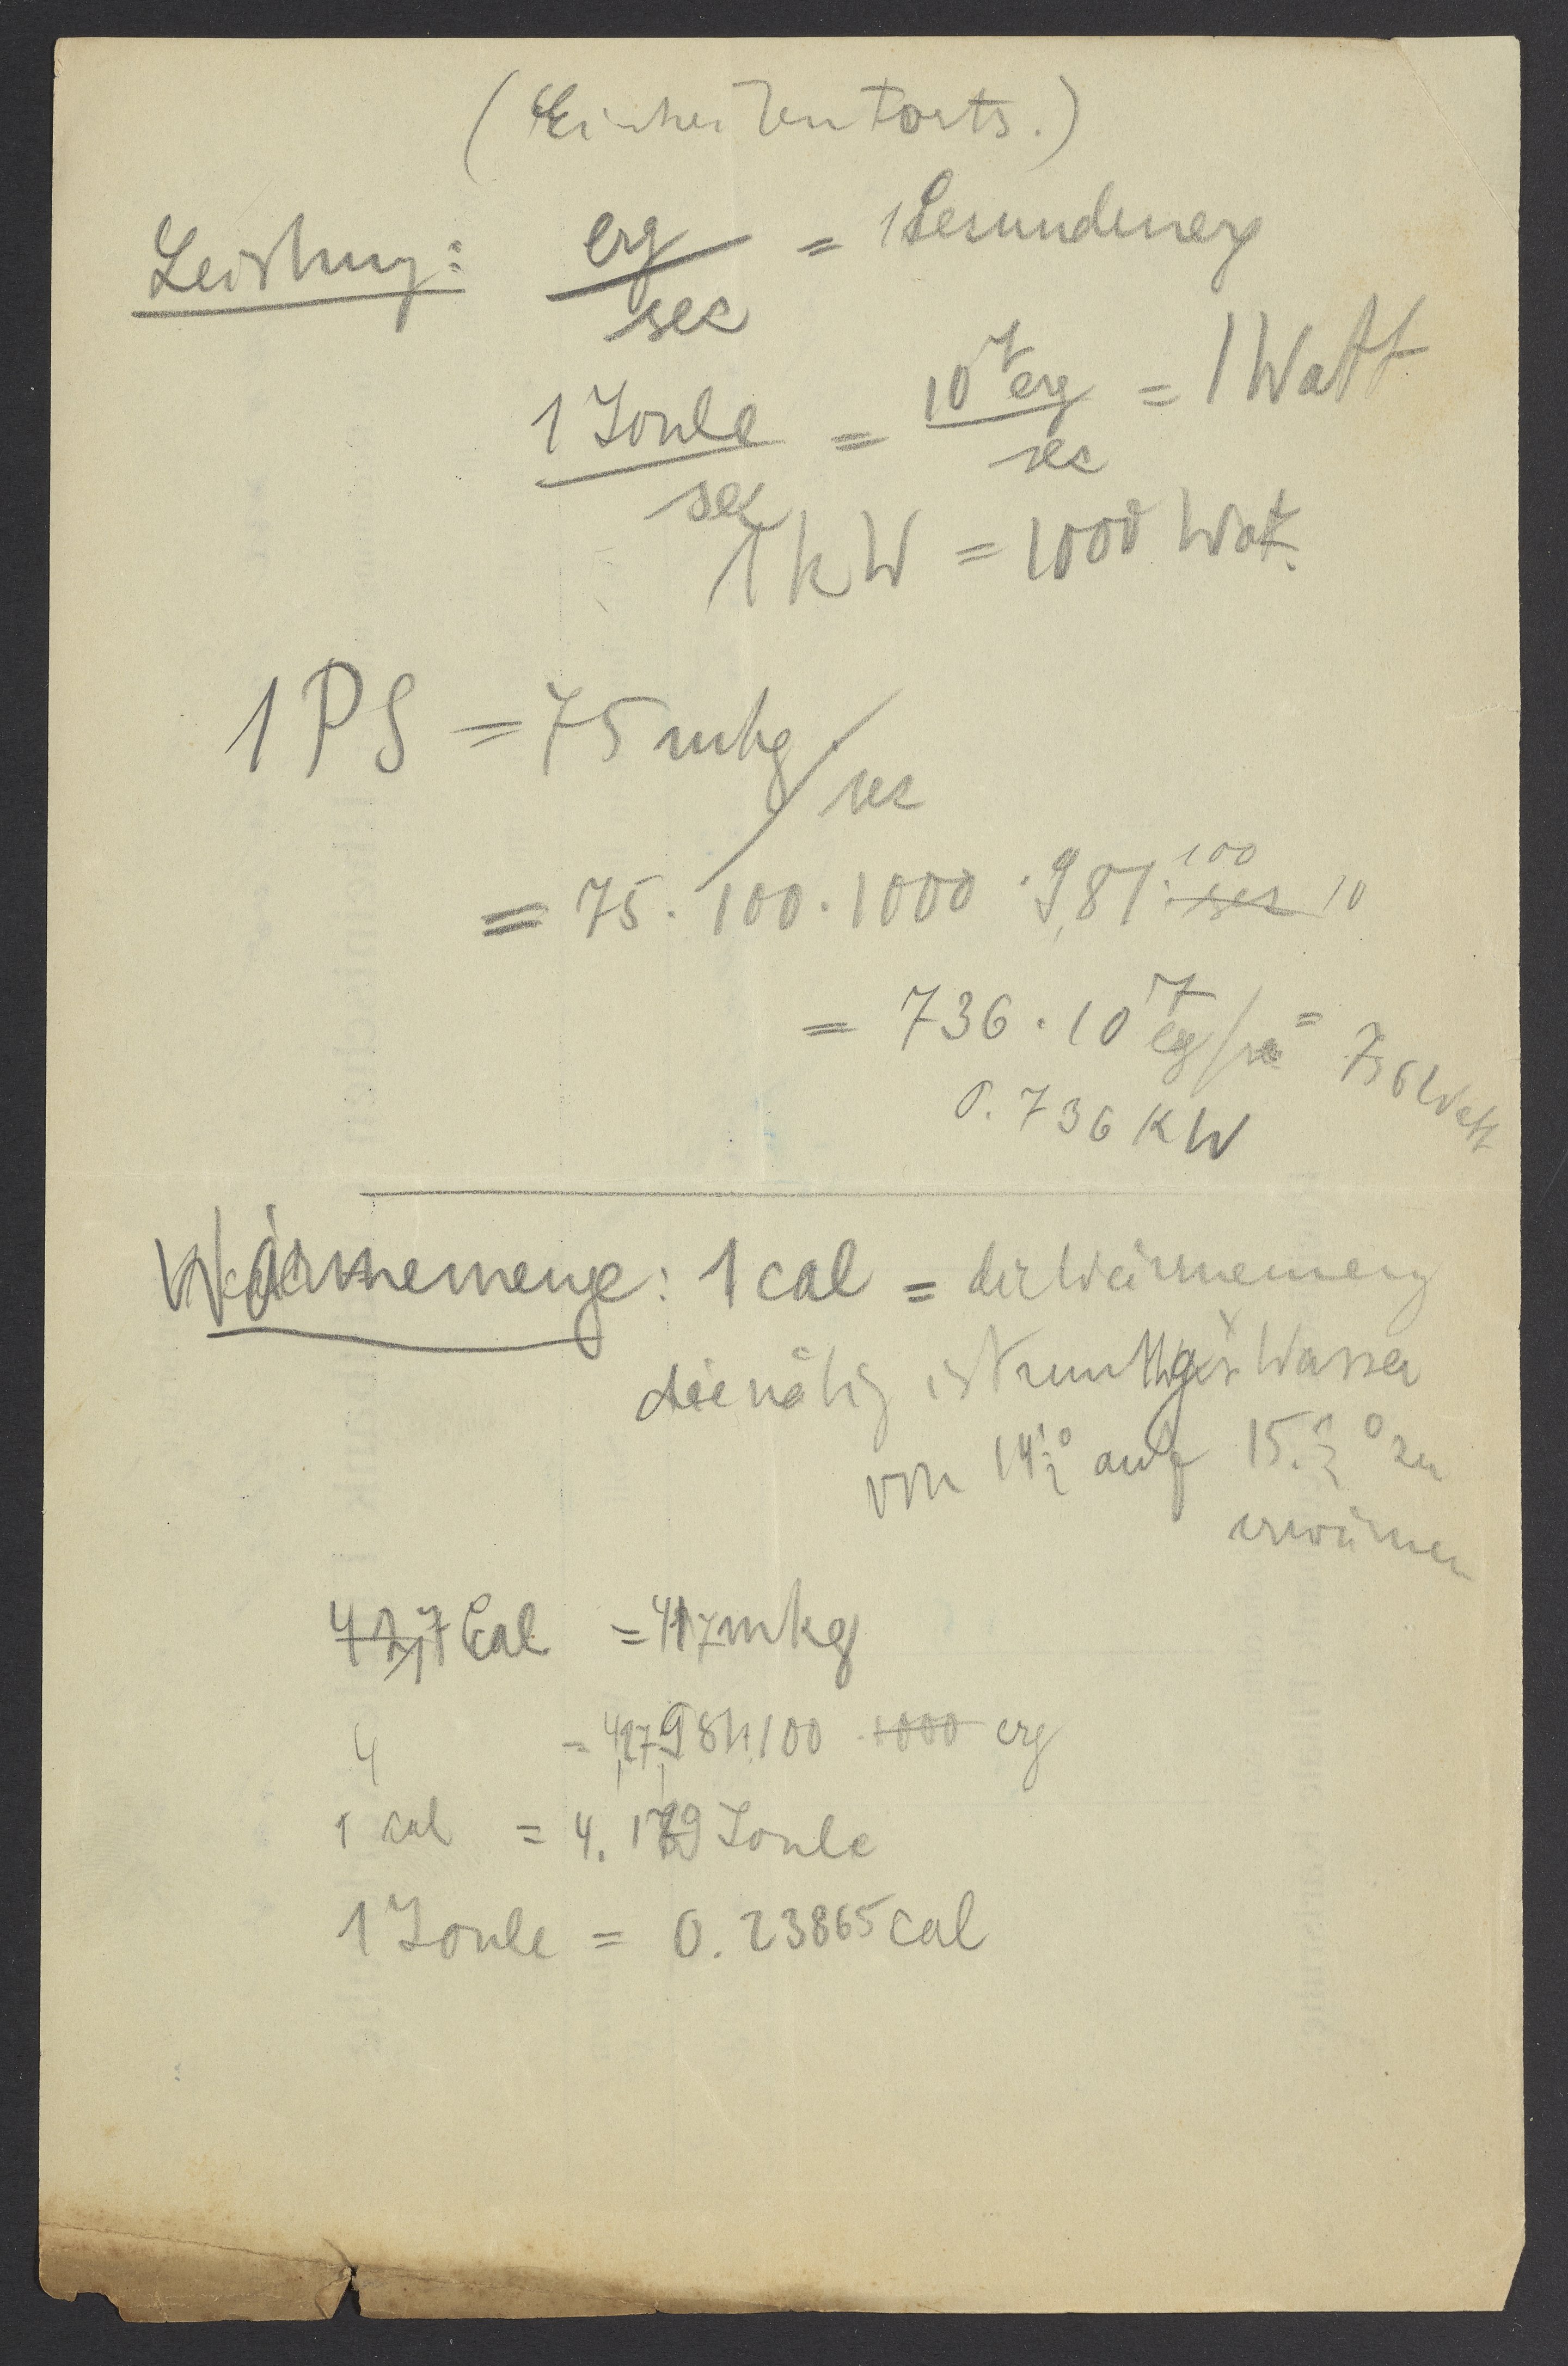 (Einheiten Forts.)
Leistung: erg/sec = 1 Sekundenerg
1 Joule/sec = 10⁷ erg/sec = 1 Watt
1 kW = 1000 Wat.
1 PS = 75 mkg/sec
= 75 . 100 . 1000 . 9,81 . 100 sec 10
= 736 . 10⁷ erg/sec = 736 Watt
0.736 KW
Wärmemenge: 1 cal = die Wärmemeng
die nötig ist um 1 gr Wasser
von 14½° auf 15.½° zu
erwärmen
427 Cal = 427 mkg
4 = 427 981.100 . 1000 erg
1 cal = 4.189 Joule
1 Joule = 0.23865 cal